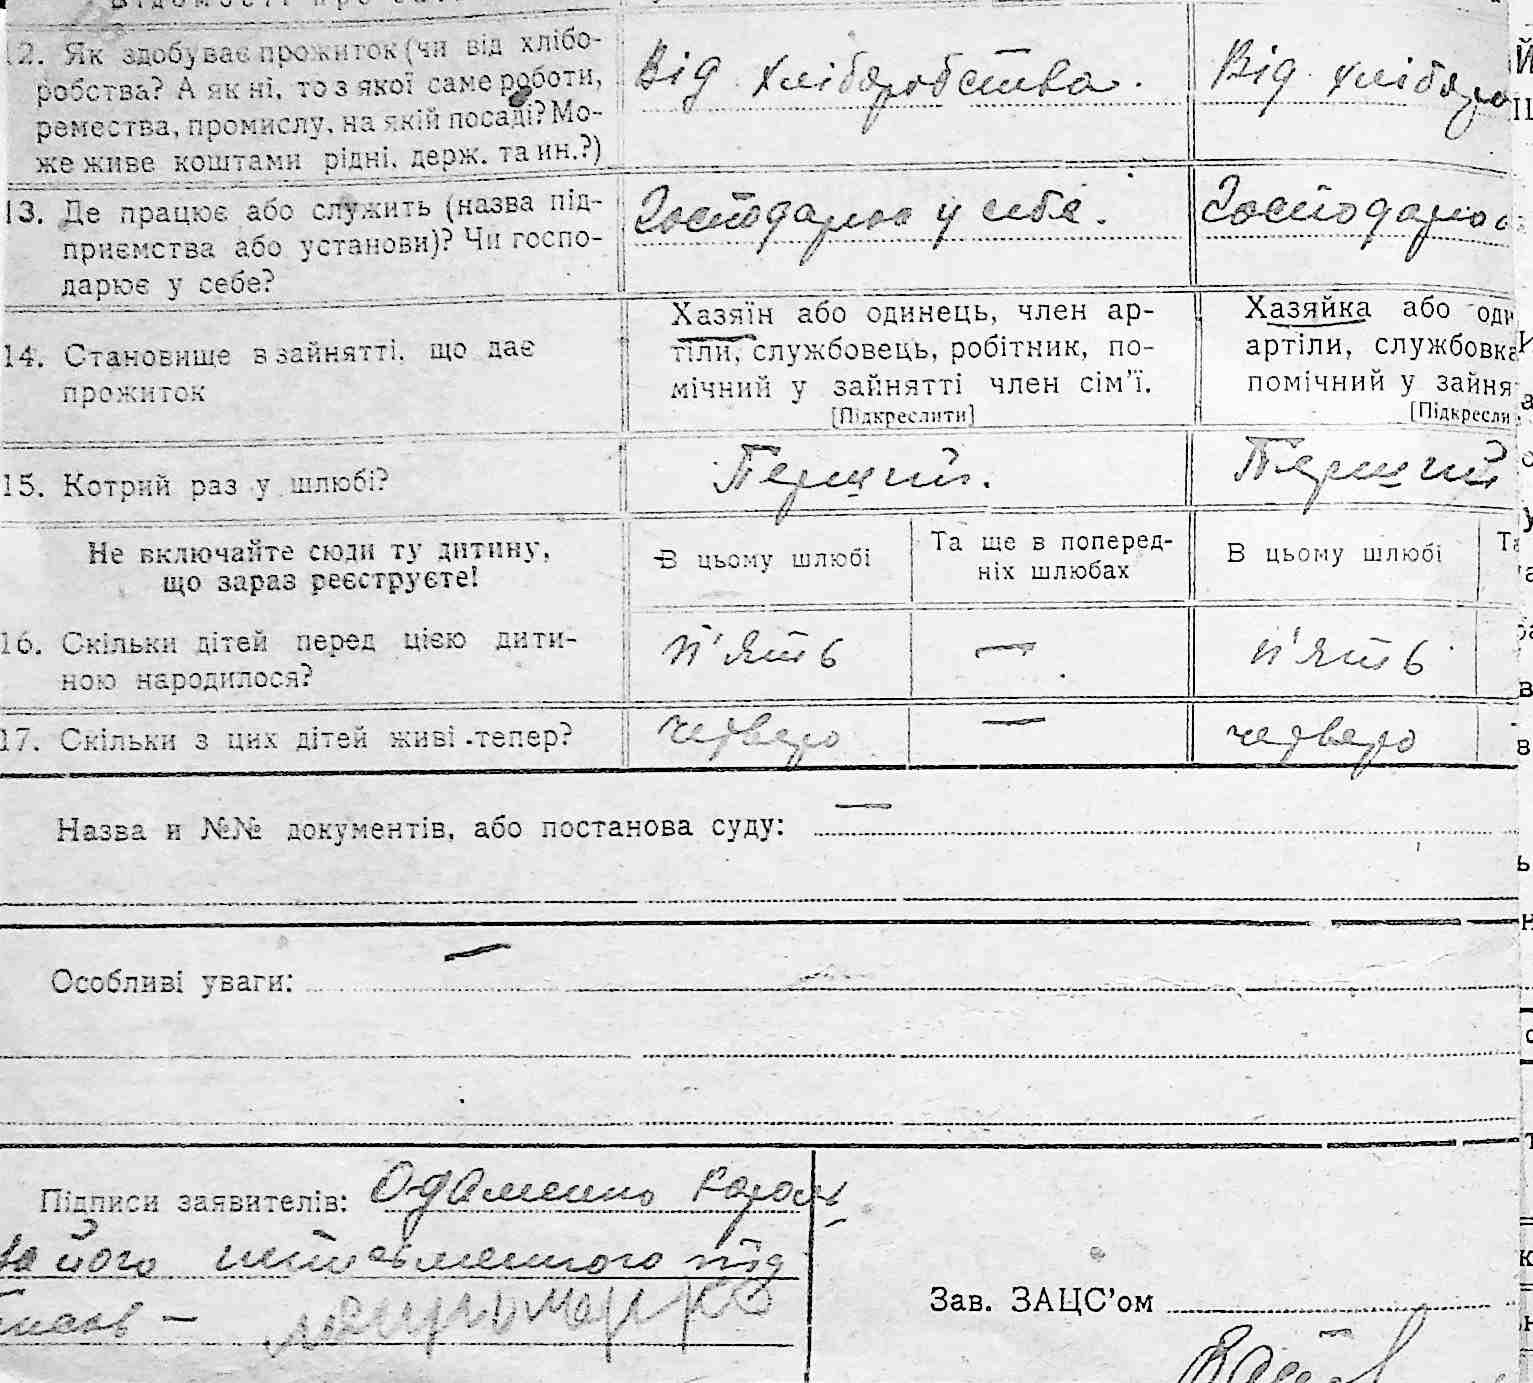 12. Як здобуває прожиток (чи від хлібо-
робства? А як ні, то з якої саме роботи,
ремества, промислу, на якій посаді? Мо-
же живе коштами рідні, держ. та ин.?)
Від хліборобства. Від хліборо
13. Де працює або служить (назва під-
приємства або установи)? Чи госпо-
дарює у себе?
Господарює у себе. Господарює
14. Становище в зайнятті, що дає
прожиток
Хазяїн або одинець, член ар-
тіли, службовець, робітник, по-
мічний у зайнятті член сім'ї.
[Підкреслити]
Хазяйка або оди
артіли, службовка
помічний у зайня
[Підкресли
15. Котрий раз у шлюбі? Перший. Перший
Не включайте сюди ту дитину,
що зараз реєструєте!
В цьому шлюбі
Та ще в поперед-
ніх шлюбах
В цьому шлюбі
Та
16. Скільки дітей перед цією дити-
ною народилося?
п'ять — п'ять
17. Скільки з цих дітей живі тепер? четверо — четверо
Назва и №№ документів, або постанова суду: —
Особливі уваги: —
Підписи заявителів:
за його неписьменного під
писав —
Зав. ЗАЦС'ом